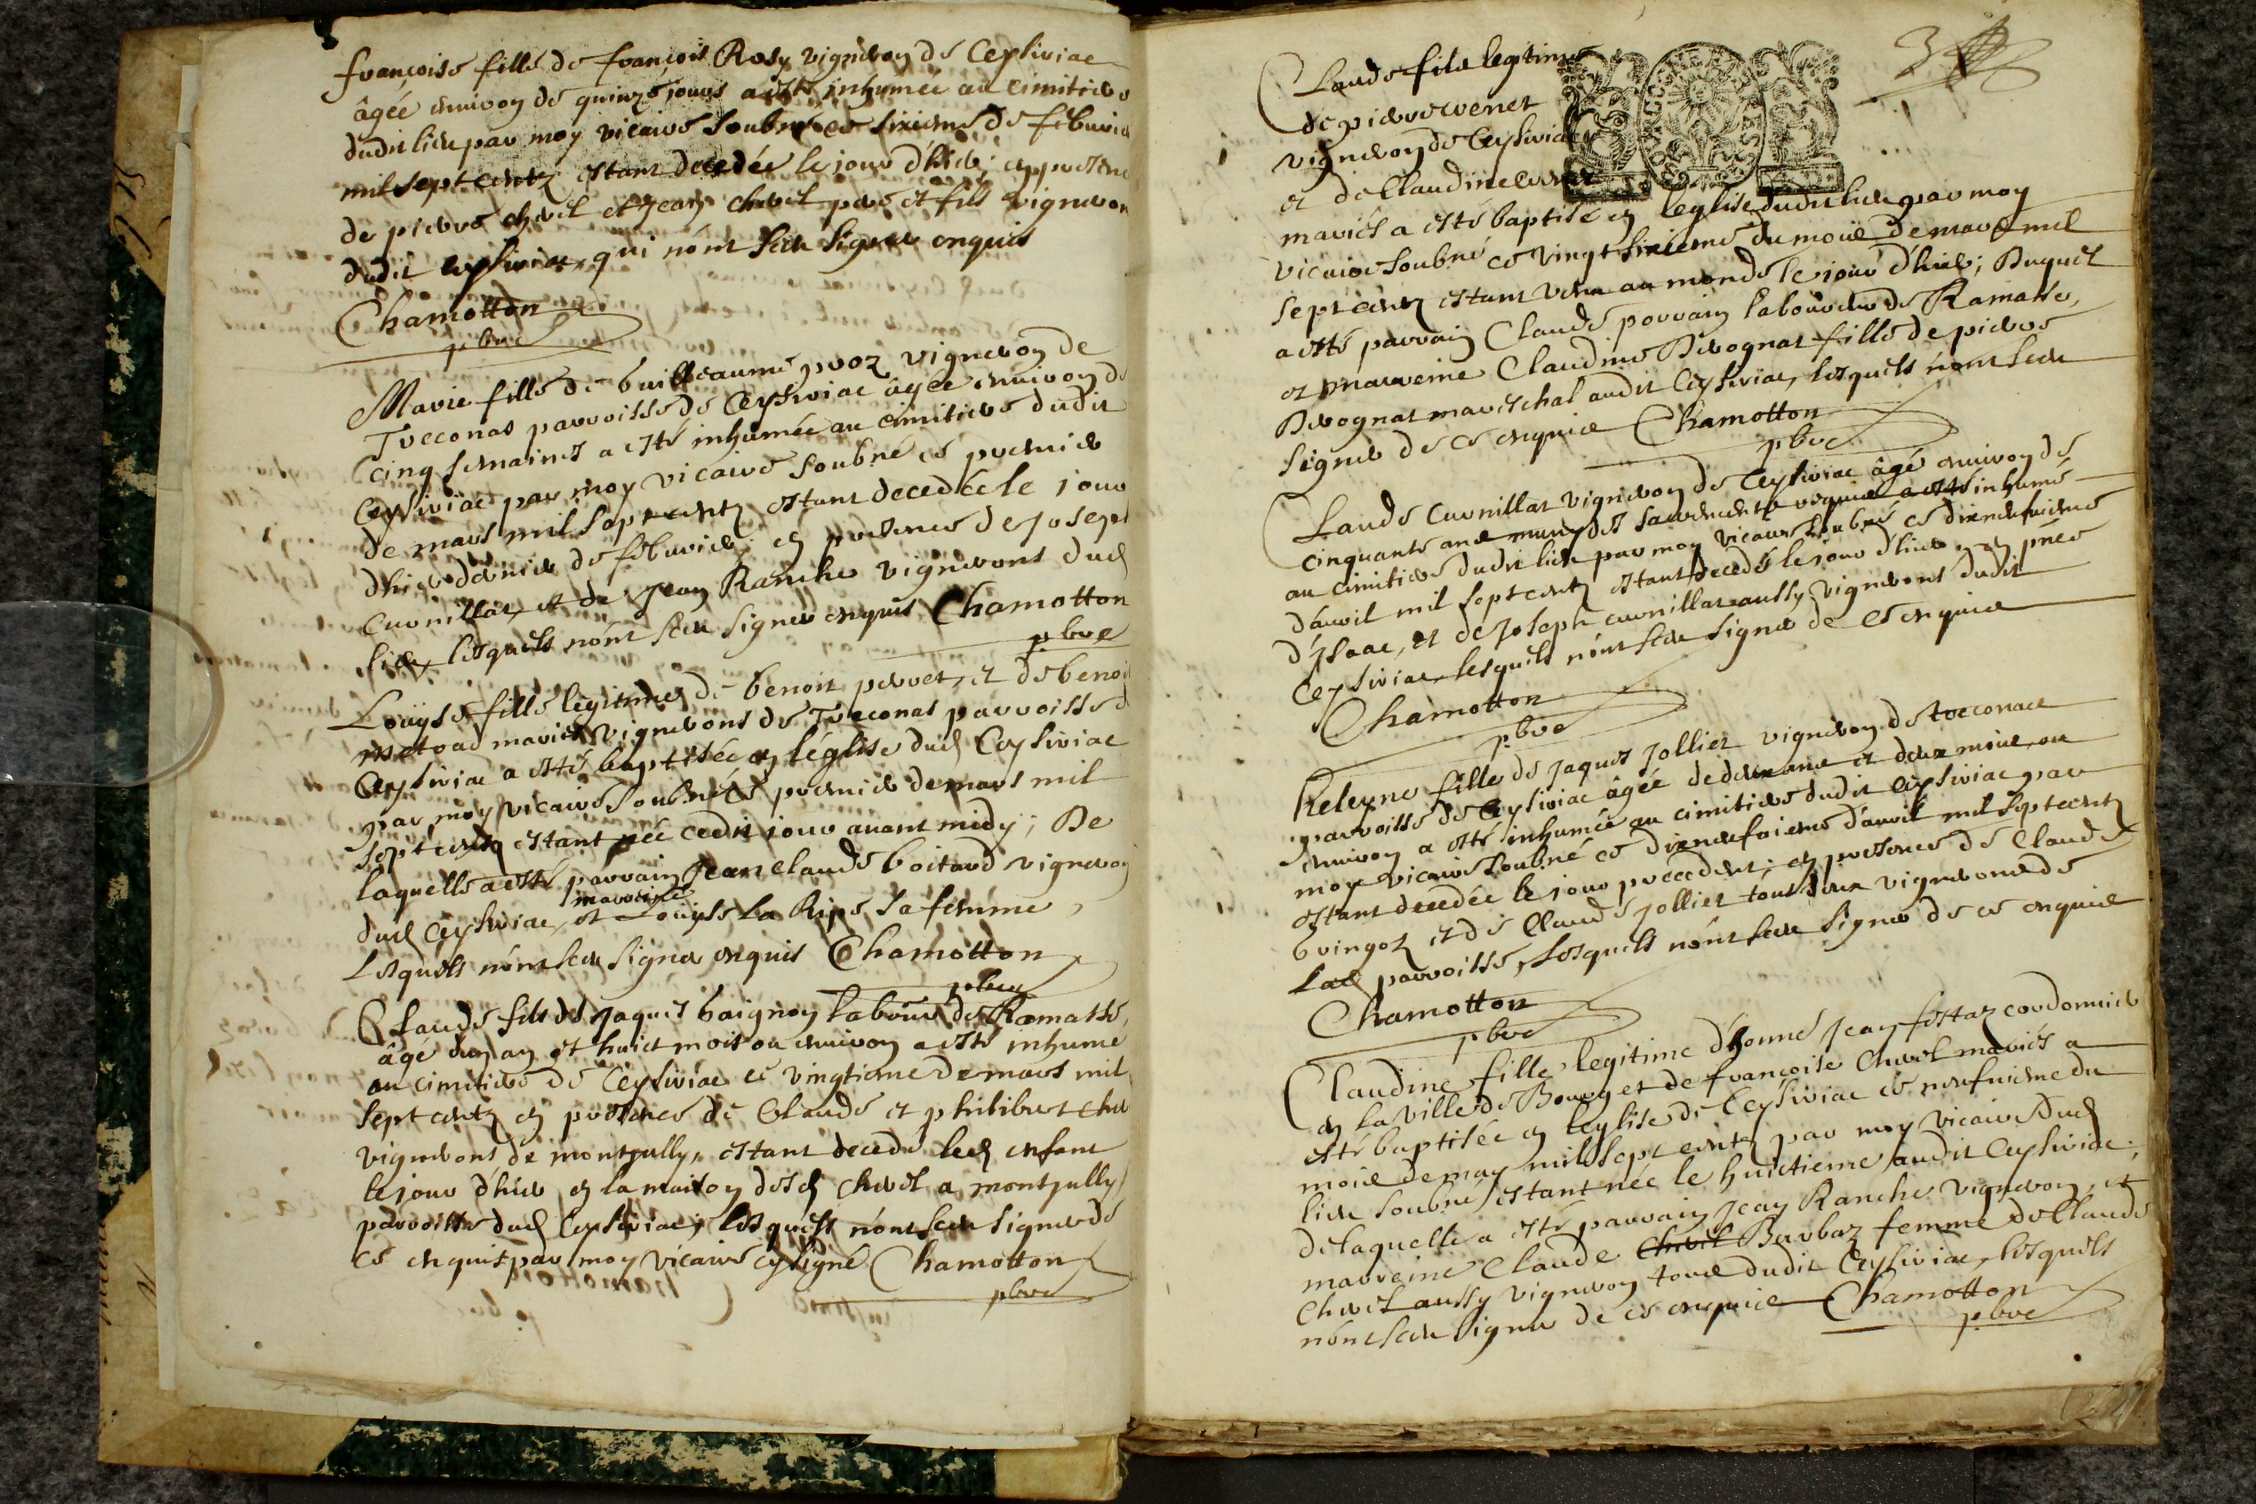 françoise fille de françois Rosy vigneron de Ceysiriac
âgée environ de quinze jours a esté inhumée au cimitiere
dudit lieu par moy vicaire soubné ce sixieme de febvrier
mil sept centz estant decedée le jour d'hier; en presence
de pierre chivel et jean chivel pere et fils vignerons
dudit ceysiriac, qui n'ont sceu signer enquis
Chamotton
pbre
Marie fille de Guilleaume proz vigneron de
Treconas parroisse de Ceysiriac âgée environ de
cinq semaines a esté inhumée au cimitiere dudit
Ceysiriac par moy vicaire soubné ce premier
de mars mil sept centz estant decedée le jour
d'hier dernier de febvrier; en presence de Joseph
Cuvnillat, et de Jean Ranche vignerons dud
lieu lesquels n'ont sceu signer enquis Chamotton
pbre
Loüyse fille legitime de benoit perret, et de benoi
mariés vignerons de Treconas parroisse d
Ceysiriac a esté baptisée en l'église dud Ceysiriac
par moy vicaire soubné ce premier de mars mil
sept centz estant née cedit jour avant midy; De
laquelle a esté parrain Jean Claude boitard vigneron
marreine
dud Ceysiriac, et Loüyse la Ripe sa femme,
Lesquels n'ont sceu signer enquis Chamotton
pbre
Claude fils de Jaques baignoy labour de Ramasse,
âgé d'un an et huict mois ou environ a esté inhumé
au cimitiere de Ceysiriac ce vingtieme de mars mil
sept centz en presence de Claude et philibert chiv
vignerons de montjully, estant decedé led enfant
le jour d'hier en la maison desd chivel a montjully
parroisse dud Ceysiriac; lesquels n'ont sceu signer de
ce enquis par moy vicaire cy signé Chamotton
pbre
3
Claude fils legitime
de pierre venet
vigneron de Ceysiriac
et de Claudine
mariés a esté baptisé en l'eglise dudit lieu par moy
vicaire soubné ce vingt sixieme du mois de mars mil
sept centz estant venu au monde le jour d'hier; Duquel
a esté parrain Claude porrain laboureur de Ramasse,
et marreine Claudine Brognat fille de pierre
Brognat mareschal audit Ceysiriac, lesquels n'ont sceu
signer de ce enquis Chamotton
pbre
Claude Cuvnillat vigneron de Ceysiriac âgé environ de
cinquante ans muny des sacrements requis a esté inhumé
au cimitiere dudit lieu par moy vicaire soubné ce dixneufvieme
d'avril mil sept centz estant decedé le jour d'hier, en pñce
d'Isaac, et de Joseph cuvnillat aussy vignerons dudit
Ceysiriac, lesquels n'ont sceu signer de ce enquis
Chamotton
pbre
Heleyne fille de Jaques Jollier vigneron de treconas
parroisse de Ceysiriac âgée de deux ans et deux mois, ou
environ a esté inhumée au cimitiere dudit Ceysiriac par
moy vicaire soubné ce dixneufvieme d'avril mil sept centz
estant decedée le jour precedent; en presence de Claude
bringoz et de Claude Jollier tous deux vignerons de
lad parroisse, Lesquels n'ont sceu signer de ce enquis
Chamotton
pbre
Claudine fille legitime d'honné Jean festaz cordonnier
en la ville de Bourg et de françoise Chivel mariés a
esté baptisée en l'eglise de Ceysiriac ce neufvieme du
mois de may mil sept centz par moy vicaire dud
lieu soubné, estant née le huictieme audit Ceysiriac;
de laquelle a esté parrain Jean Ranche vigneron, et
marreine Claude Chivel Barbaz femme de Claude
Chivel aussy vigneron tous dudit Ceysiriac, lesquels
n'ont sceu signer de ce enquis Chamotton
pbre